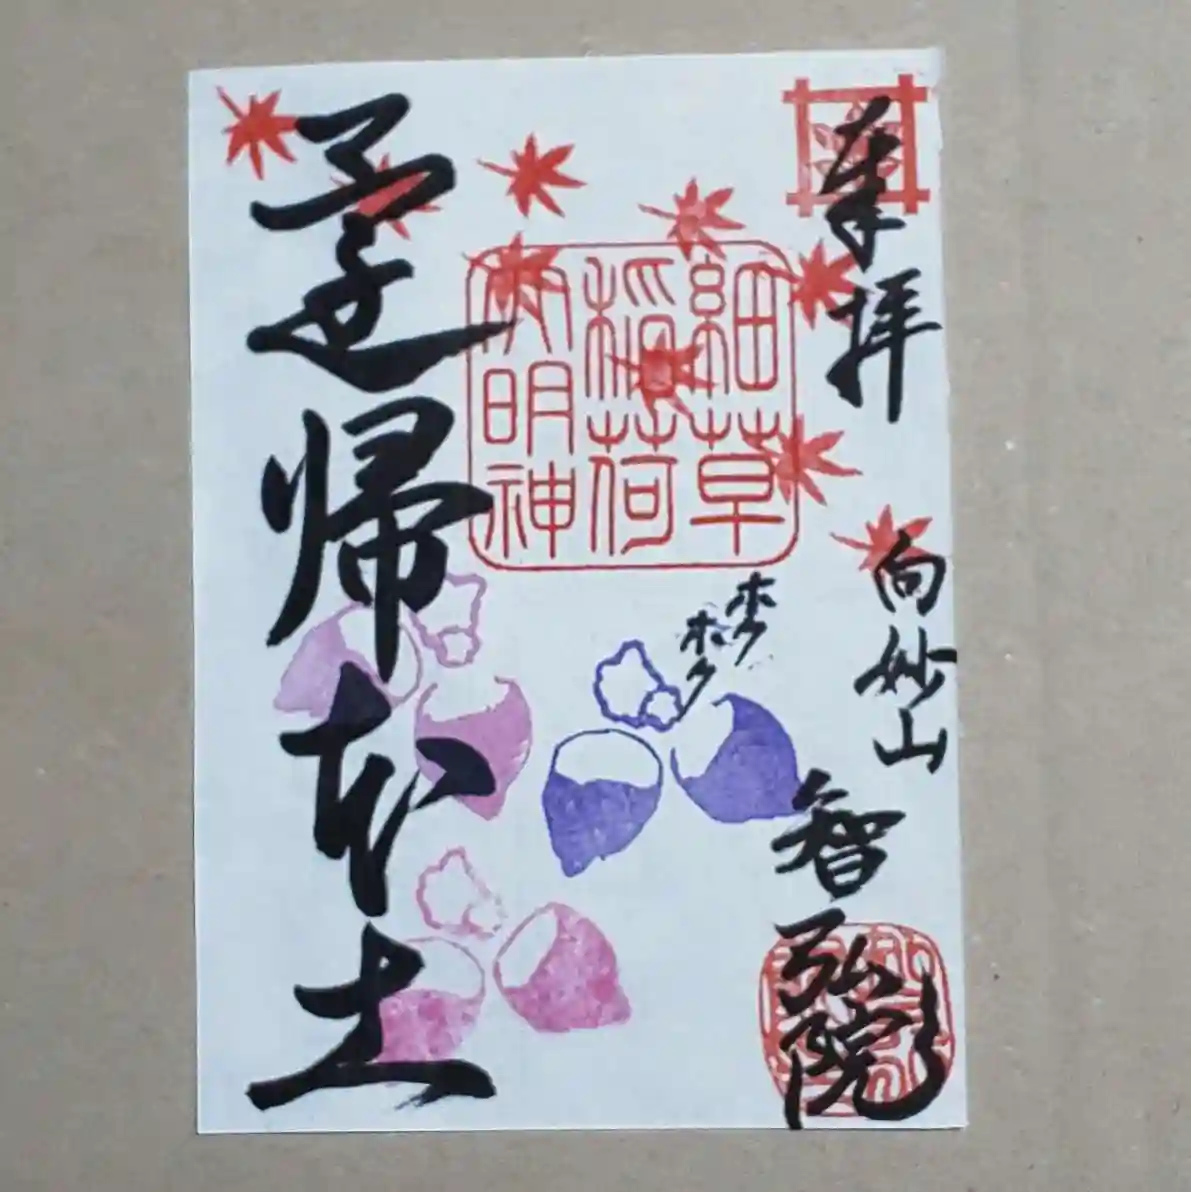 奉拝
向妙山
智弘院
細草
稲荷
大明神
ホク
ホク
還帰本土